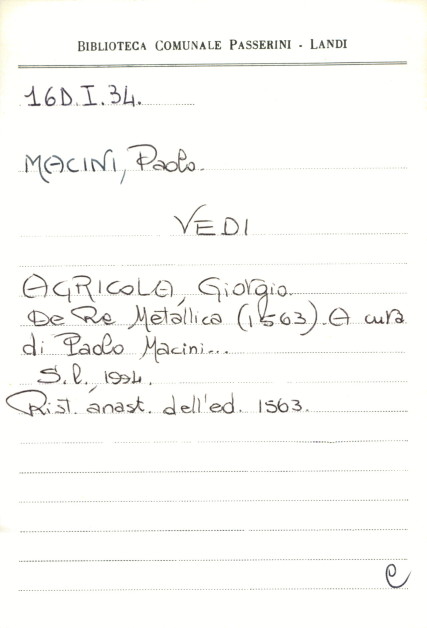 BIBLIOTECA COMUNALE PASSERINI - LANDI
16D.I.34.
MACINI, Paolo.
VEDI
AGRICOLA, Giorgio.
De Re Metallica (1563). A cura
di Paolo Macini...
S.l., 1994.
Rist. anast. dell'ed. 1563.
C